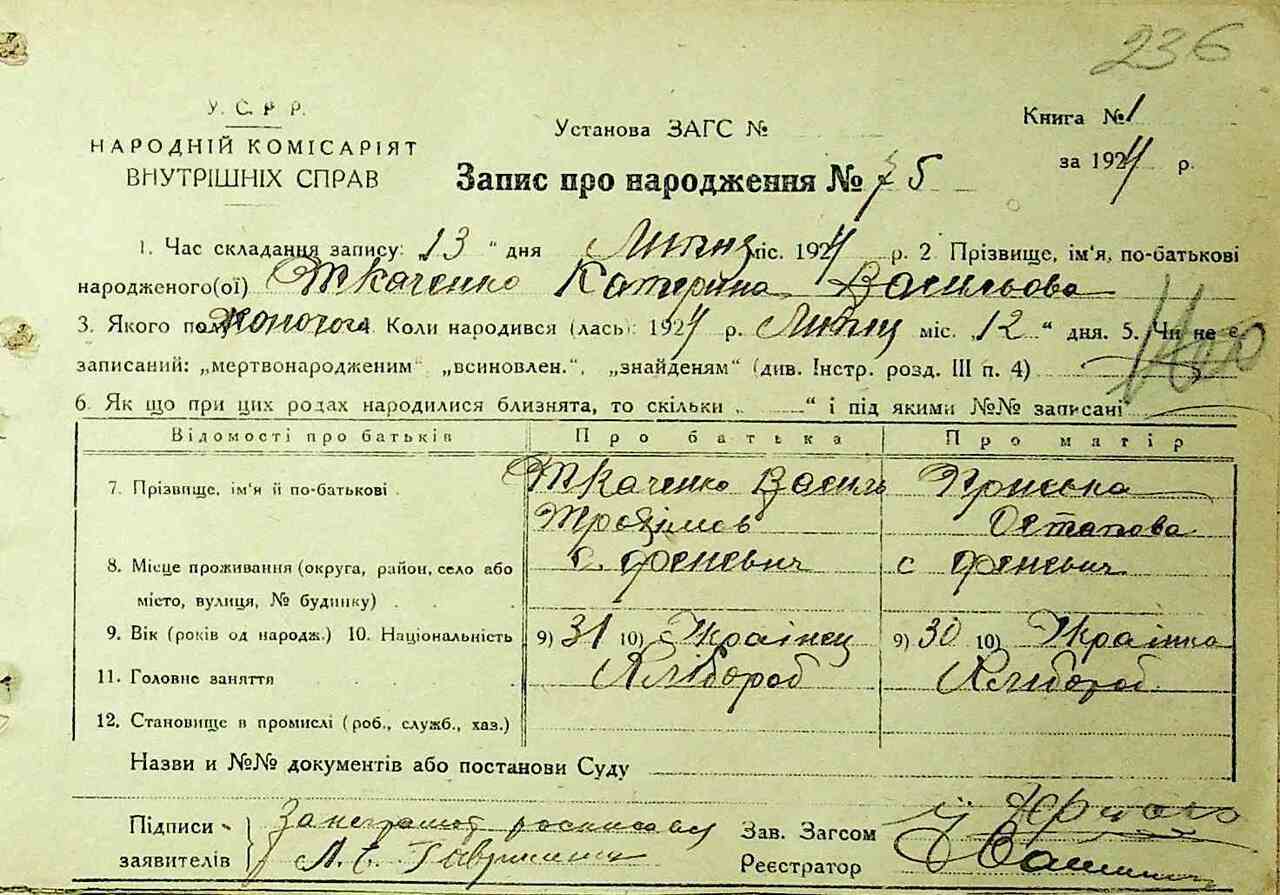 236
У. С. Р. Р.
НАРОДНІЙ КОМІСАРІЯТ
ВНУТРІШНІХ СПРАВ
Установа ЗАГС №
Книга № 1
за 1924 р.
Запис про народження № 75
1. Час складання запису: 13 " дня Липня міс. 1924 р. 2 Прізвище, ім'я, по-батькові
народженого(ої) Ткаченко Катерина Васильова
3. Якого пол жоночога 4. Коли народився (лась): 1924 р. Липня міс. „12 “ дня. 5. Чи не є
записаний: „мертвонародженим“ „всиновлен.“, „знайденям“ (див. Інстр. розд. III п. 4)
6. Як що при цих родах народилися близнята, то скільки „ “ і під якими №№ записані
Відомості про батьків Про батька Про матір
7. Прізвище, ім'я й по-батькові Ткаченко Василь Приська
Трохімов Остапова
8. Місце проживання (округа, район, село або с. Феневич с Феневич
місто, вулиця, № будинку)
9. Вік (років од народж.) 10. Національність 9) 31 10) Украінец 9) 30 10) Украінка
11. Головне заняття Хлібороб Хлібороб
12. Становище в промислі (роб., служб., хаз.)
Назви и №№ документів або постанови Суду
Підписи
заявителів
За неграмот росписавс
Зав. Загсом
Реєстратор